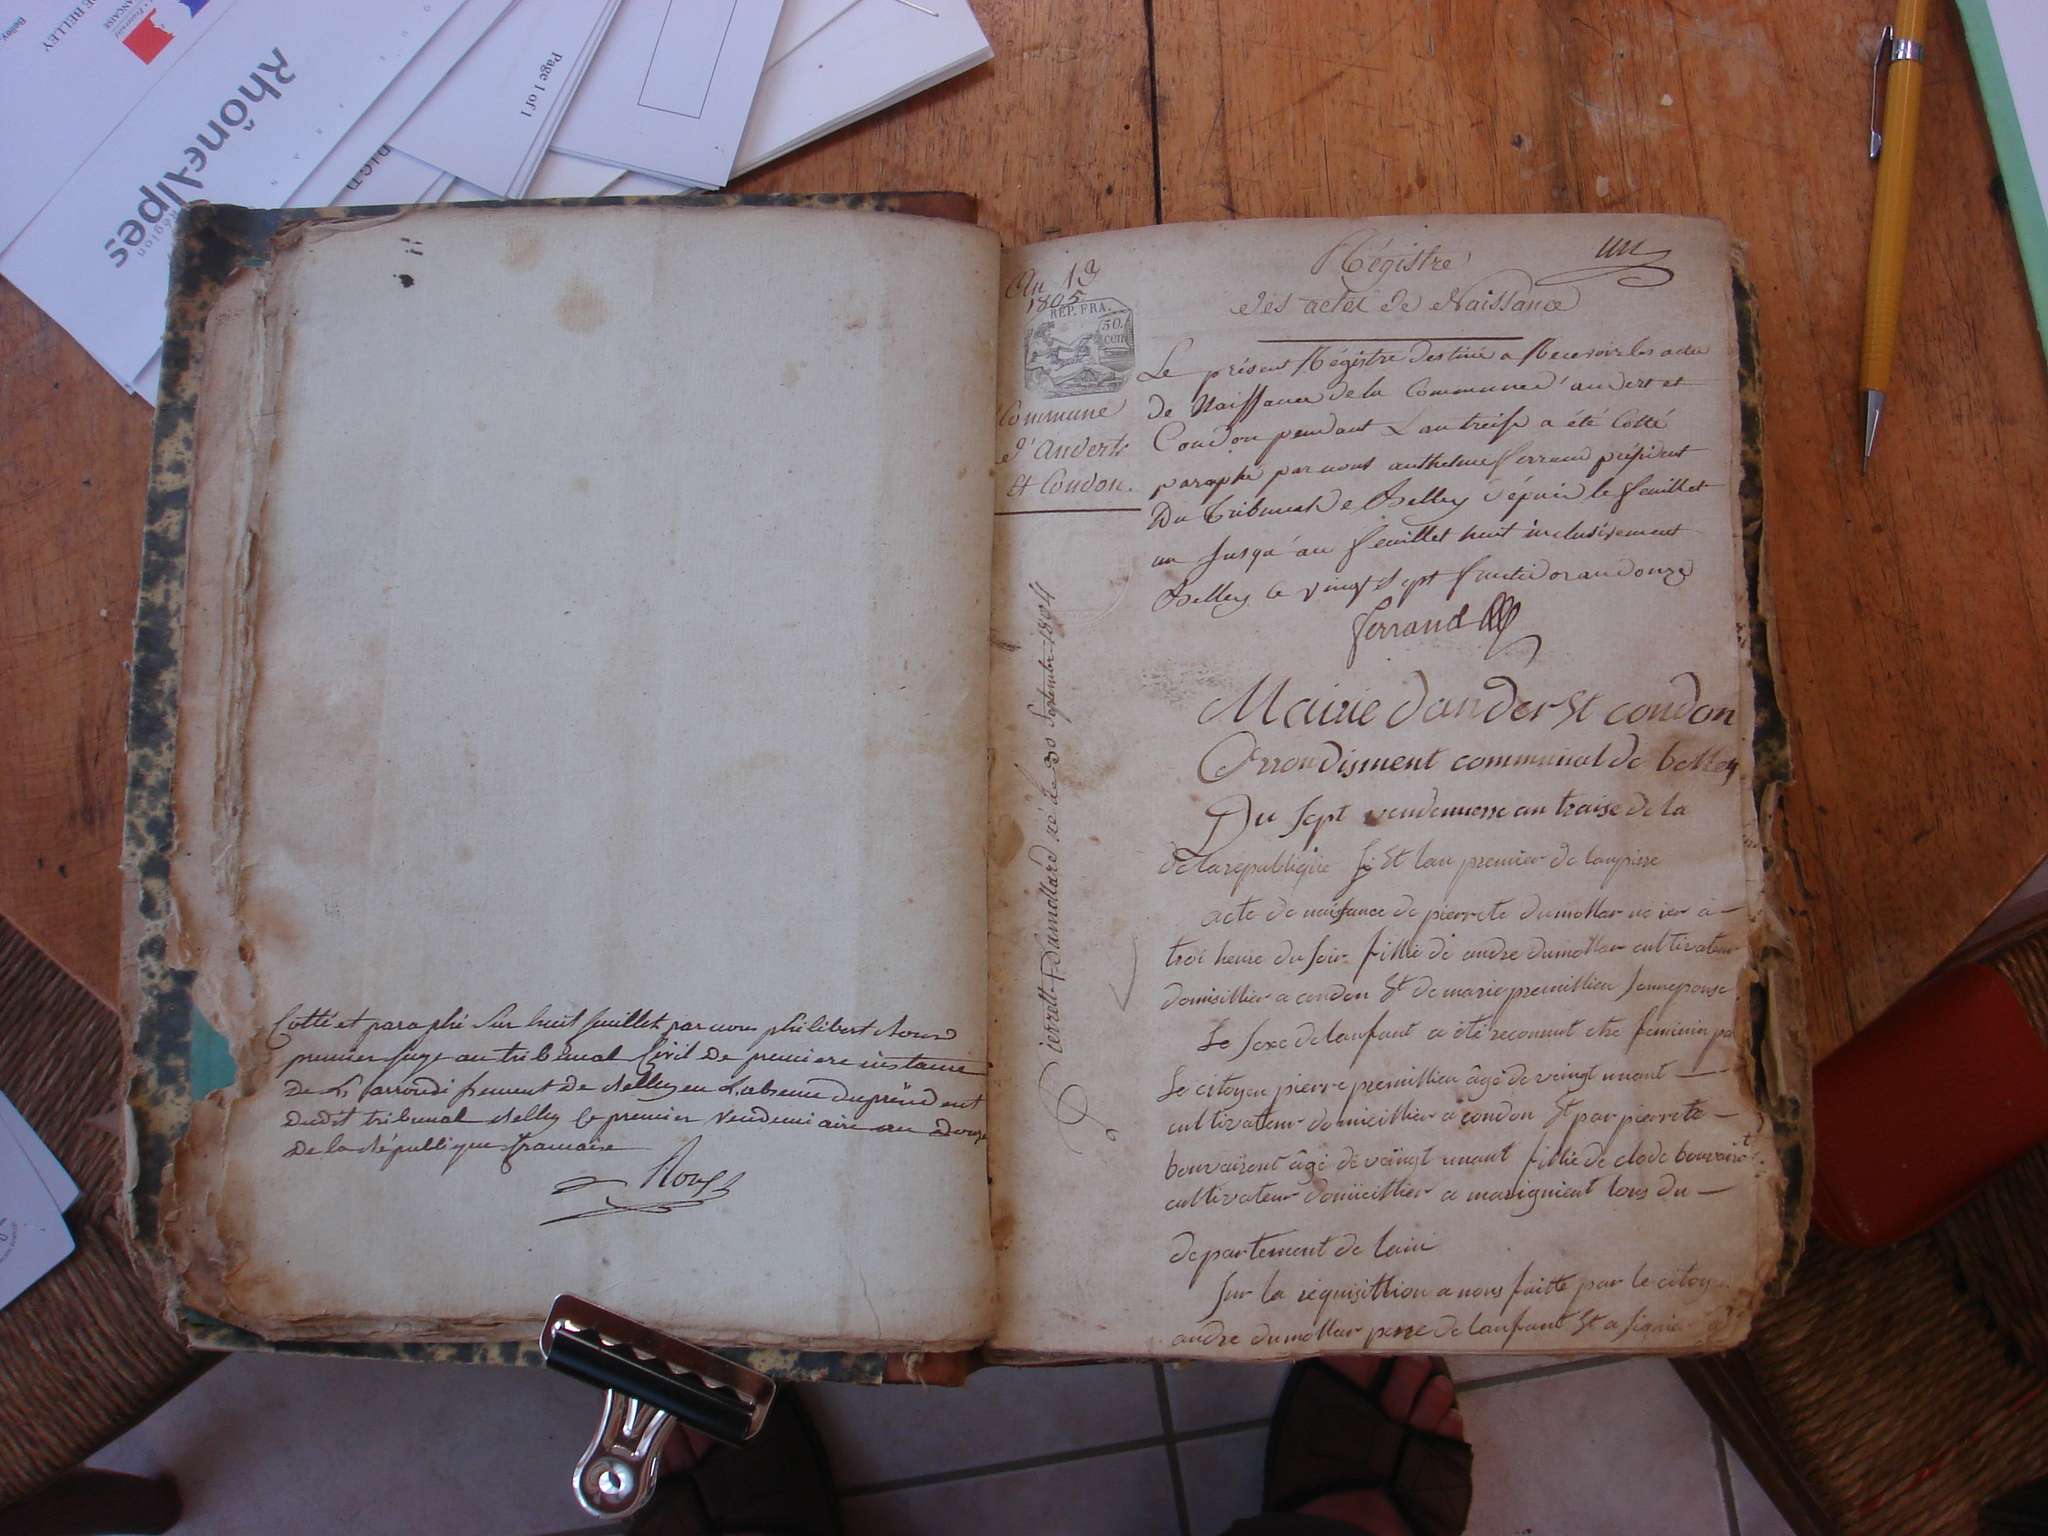 DE BELLEY
FRANÇAISE
RhôneAlpes
Région
Page 1 of 1
Cotté et paraphé sur huit feuillet par nous philibert Roux
premier juge au tribunal Civil de premiere instance
de L'arrondissement de Belley en L'absence du président
dudit tribunal Belley le premier vendemiaire an douze
de la République francaise
An 13
1805
REP. FRA.
50.
CEN
Commune
d'Anderts
et Condon.
Pierrette Dumollard né le 30 Septembre 1804
un
Régistre
des actes de Naissance
Le présent Régistre destiné a Recevoir les actes
de Naissance de la Commune d'andert et
Condon pendant L'an treise a été Cotté
paraphé par nous anthelme ferrand président
Du tribunal de Belley depuis le feuillet
un Jusqu'au feuillet huit inclusivement
Belley le vingt sept fructidor an douze
ferrand
Mairie dandert Et condon
Arrondisment communal de belley
Du sept vendemiere an traise de la
de la republique Et lan premier de lanpirre
acte de naissance de pierrete dumollar né ier à
troi heure du soir fillie de andre dumollar cultivateur
domisillier a condon Et de marie premillieu son nepouse
Le sexe de lanfant a été reconnut etre feminin pa
Le citoyen pierre premillieu âgé de veingt un ant
cultivateur domicillier a condon Et par pierrete
bouvairent âgé de veingt un ant fillie de clode bouvairent
cultivateur domicillier a marignieut tous du
departement de lain
Sur la requisithion a nous faitte par le citoyen
andre dumollar perre de lanfant Et a signié